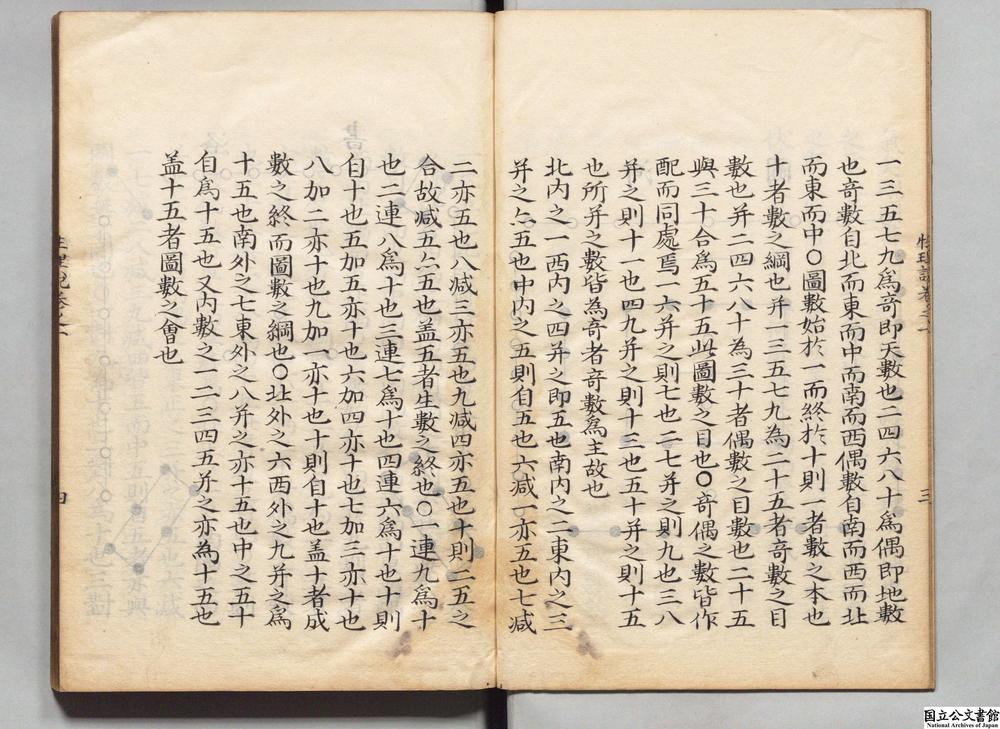 一三五七九爲奇即天數也二四六八十爲偶即地數
也竒數自北而東而中而南而西偶數自南而西而北
而東而中〇圖數始於一而終於十則一者數之本也
十者數之綱也并一三五七九為二十五者竒數之目
數也并二四六八十為三十者偶數之目數也二十五
與三十合爲五十五此圖數之目也〇奇偶之數皆作
配而同處焉一六并之則七也二七并之則九也三八
并之則十一也四九并之則十三也五十并之則十五
也所并之數皆為奇者奇數爲主故也
北內之一西內之四并之即五也南內之二東內之三
并之亦五也中內之五則自五也六減一亦五也七減
二亦五也八減三亦五也九減四亦五也十則二五之
合故减五亦五也盖五者生數之終也〇一連九爲十
也二連八爲十也三連七爲十也四連六爲十也十則
自十也五加五亦十也六加四亦十也七加三亦十也
八加二亦十也九加一亦十也十則自十也盖十者成
數之終而圖數之綱也〇北外之六西外之九并之爲
十五也南外之七東外之八并之亦十五也中之五十
自爲十五也又內數之一二三四五并之亦為十五也
盖十五者圖數之會也
性理說卷之一
三
性理說卷之一
四
国立公文書館
National Archives of Japan